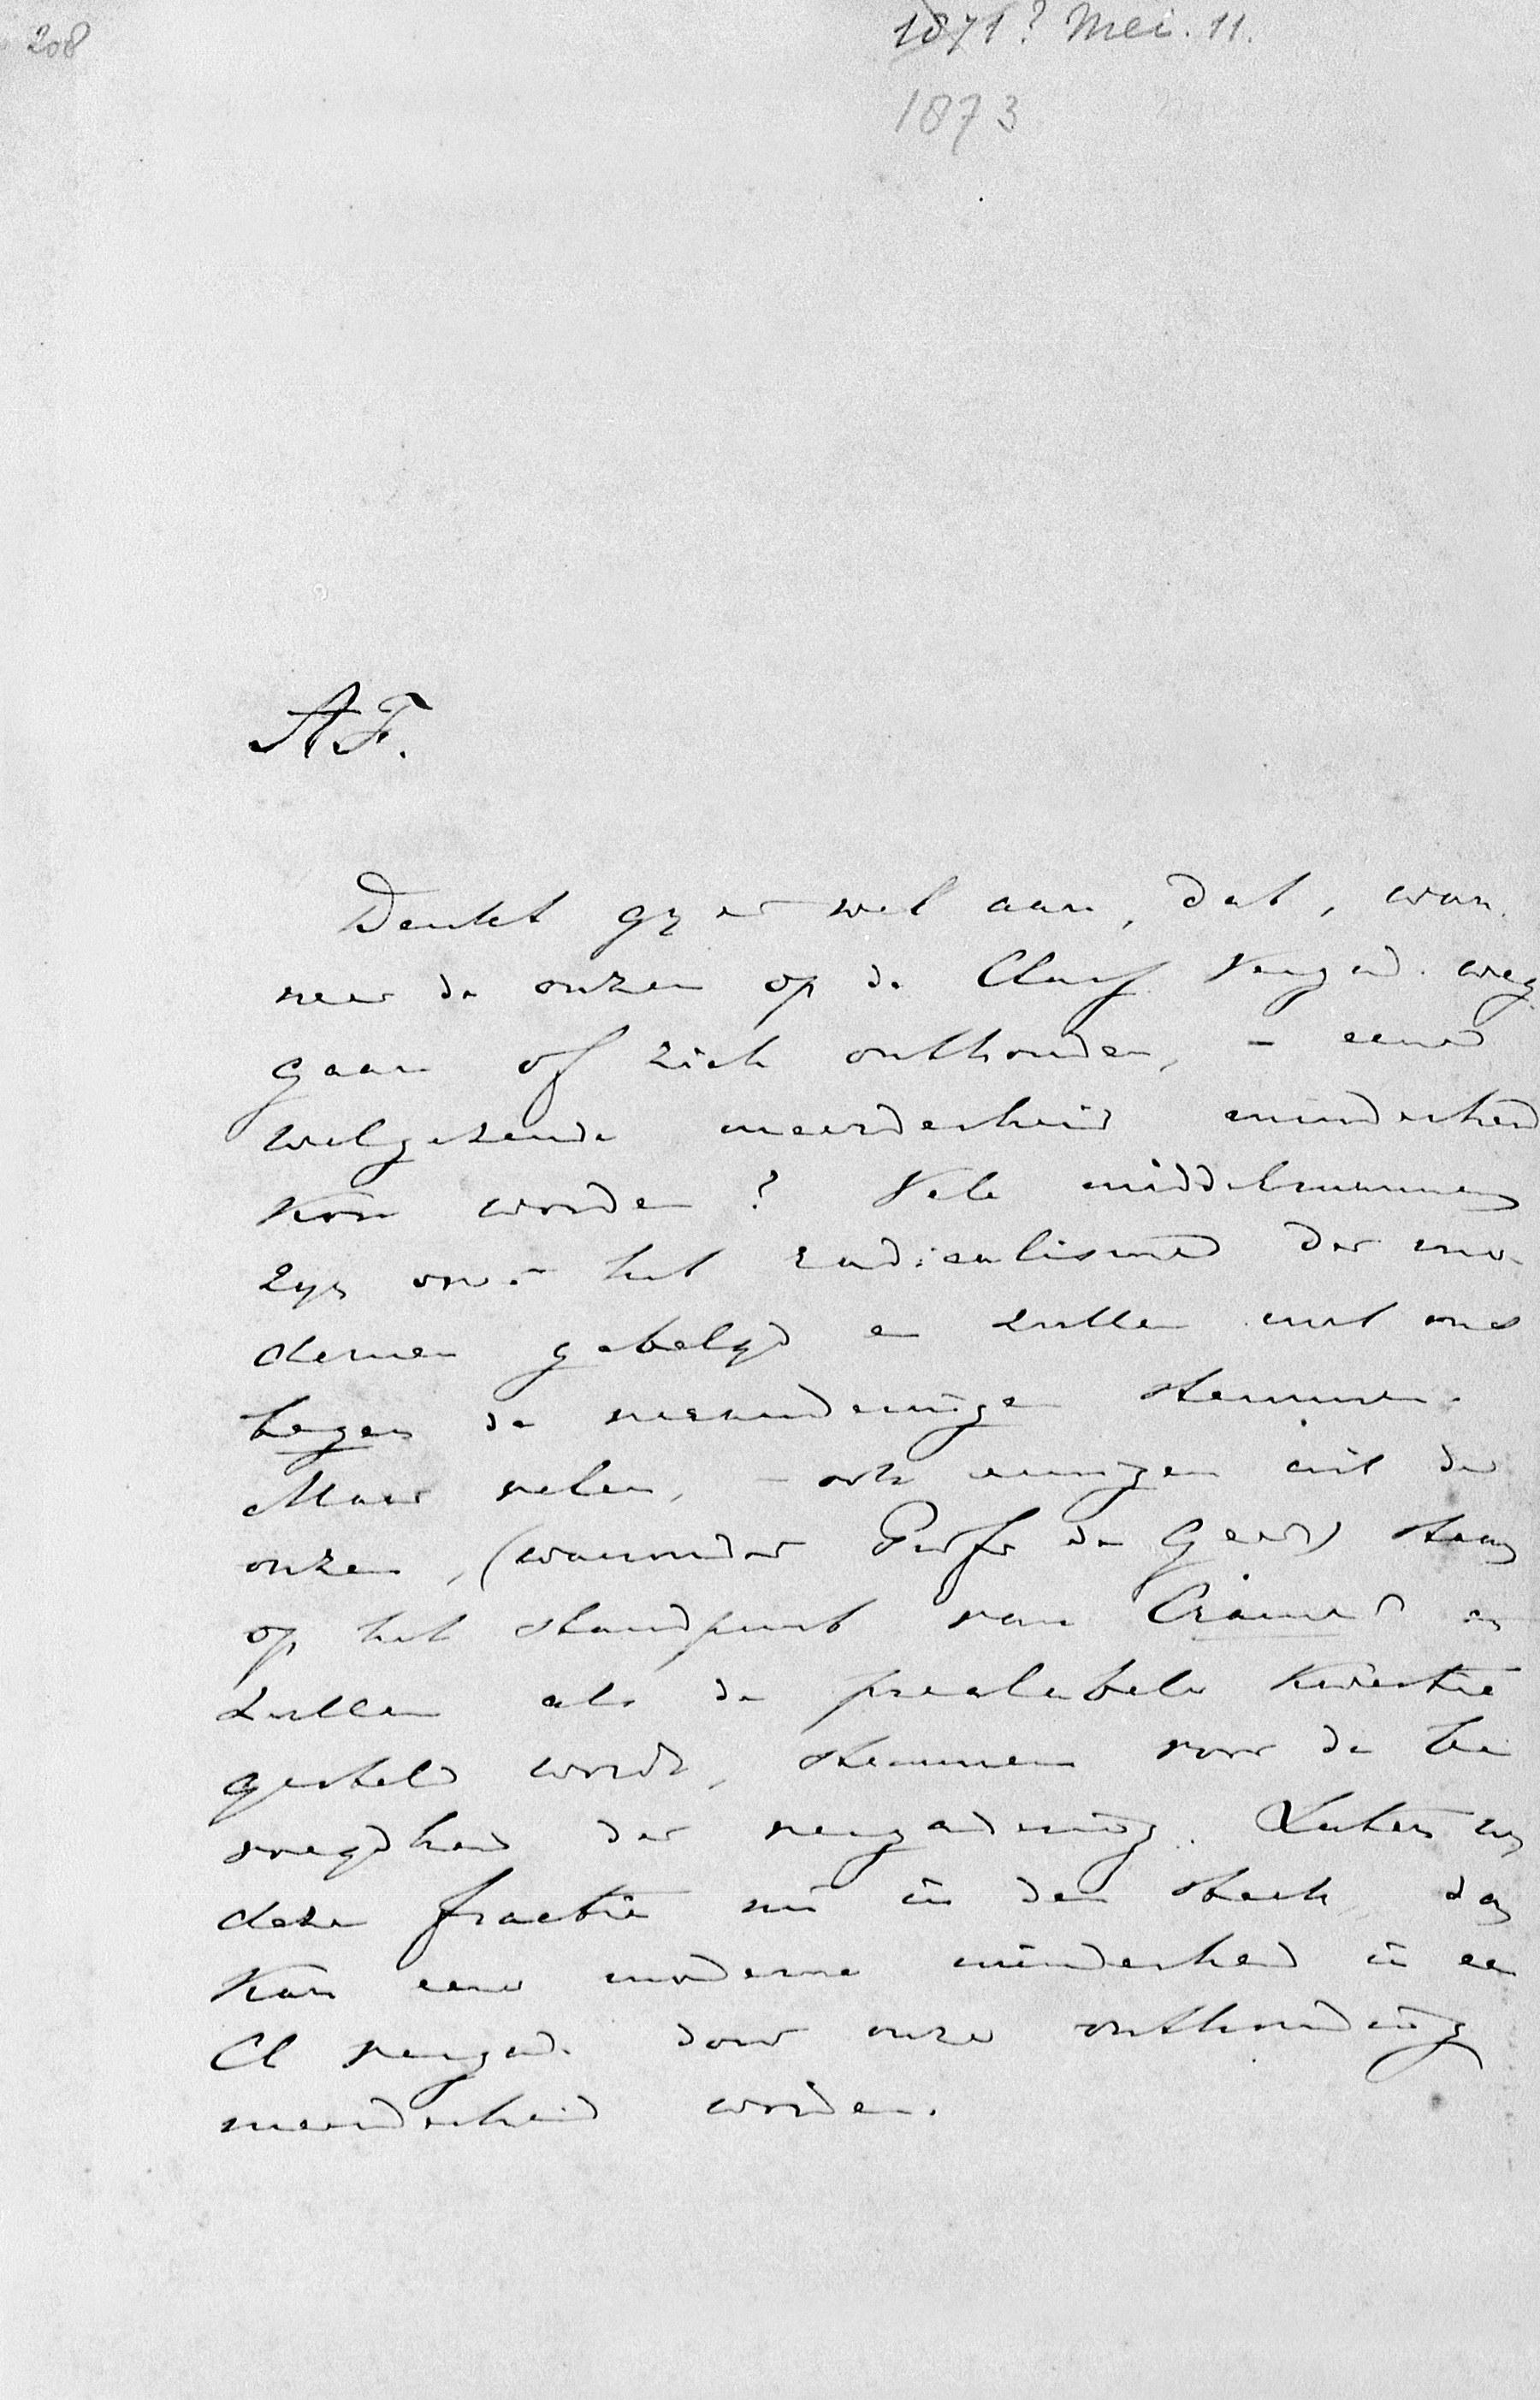 208
1871? Mei. 11.
1873
A F.
Denkt gy er wel aan, dat, wan
neer de onzen op de Class Vergad. weg
gaan of zich onthouden, - eene
welgezinde meerderheid minderheid
kon worden? Vele middelmannen
zyn over het radicalisme der mo-
dernen gebelgd en zullen met ons
tegen de veranderingen stemmen.
Maar velen, - ook eenigen uit de
onzen, (waaronder Profr de Geer) staan
op het standpunt van Cramer en
zullen als de prealabele kwestie
gesteld wordt, stemmen voor de be
voegdheid der vergadering. Laten wy
deze fractie nu in den steek, dan
kan eene moderne minderheid in een
Cl vergad. door onze onthouding
meerderheid worden.